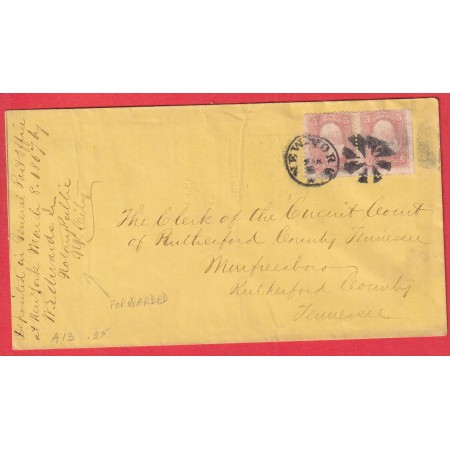 Deposited in General Post Office
at New York March 8. 1867 by
W. Edwards Jr
Notary Public
N.Y. City
NEW YORK
The Clerk of the Circuit Court
of Rutherford County Tennessee
Murfreesboro
Rutherford County
Tennessee
FORWARDED
A13 .25